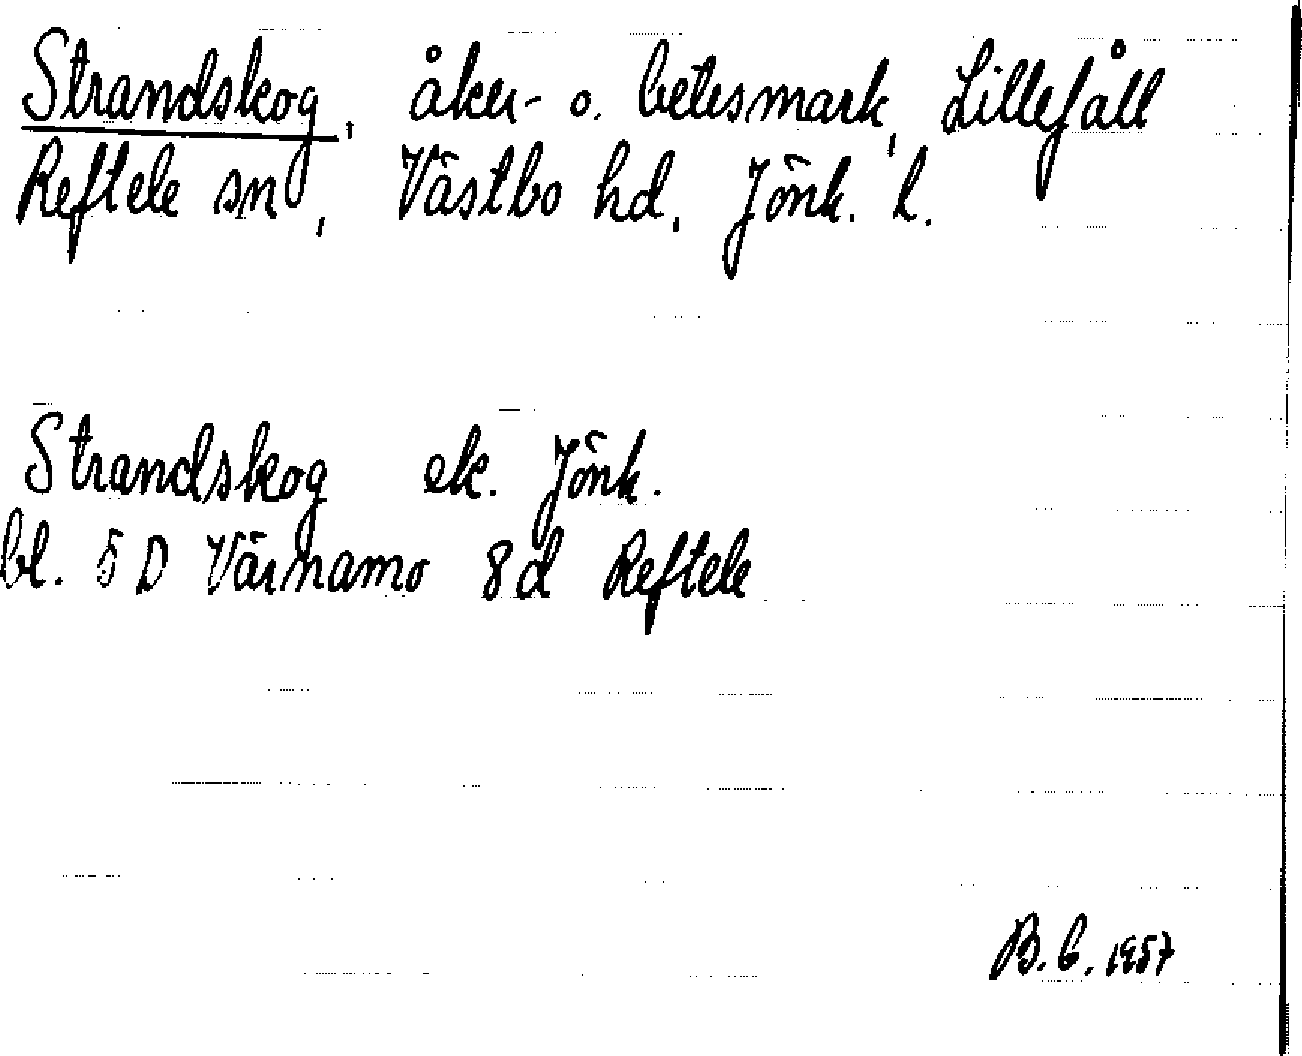 Strandskog, åker- o. betesmark, Lillefåll
Reftele sn, Västbo hd, Jönk. l.
Strandskog ek. Jönk.
bl. 5 D Värnamo 8d Reftele
B. G. 1957